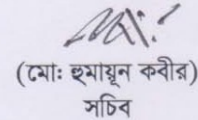 (মোঃ হুমায়ূন কবীর)
সচিব